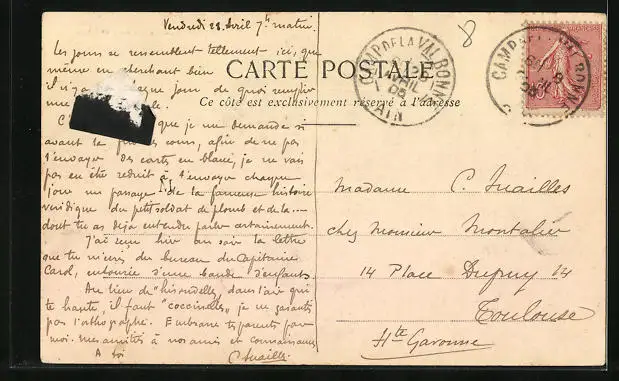 Vendredi 28 Avril 7h matin.
Les jours se ressemblent tellement ici, que
même en cherchant bien
il n'y a jour de quoi remplir
une
C' que je me demande si
avant la cours, afin de ne pas
t'envoyer des cartes en blanc, je ne vais
pas en être réduit à t'envoyer chaque
jour un passage de la fameuse histoire
véridique du petit soldat de plomb et de la ....
dont tu as déjà entendu parler certainement.
J'ai reçu hier au soir la lettre
que tu m'écris du bureau du Capitaine
Carol, entourée d'une bande d'enfants.
Au lieu de "hirondelles" dans l'air qui
te hante, il faut "coccinelles", je ne garantis
pas l'orthographe. Embrasse tes parents pour
moi. Mes amitiés à nos amis et connaissances
A toi
C. Juailles
CARTE POSTALE
Ce côté est exclusivement réservé à l'adresse
8
CAMP DE LA VALBONNE
AVRIL
05
AIN
CAMP DE LA VALBONNE
Madame C. Juailles
chez Monsieur Montalier
14 Place Dupuy 14
Toulouse
Hte Garonne